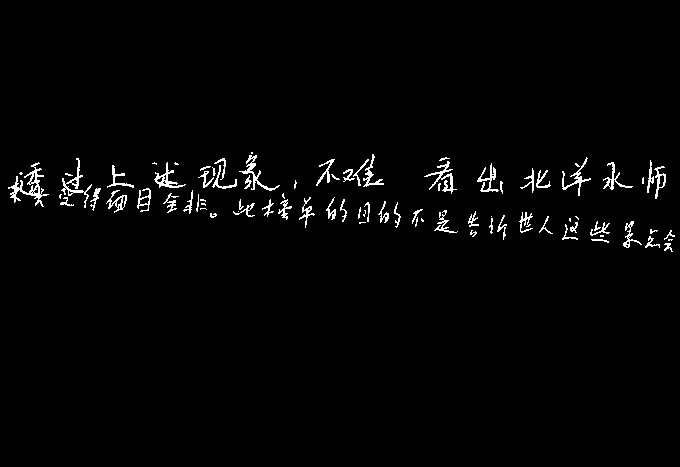 透过上述现象，不难看出北洋水师
变得面目全非。此榜单的目的不是告诉世人这些景点会